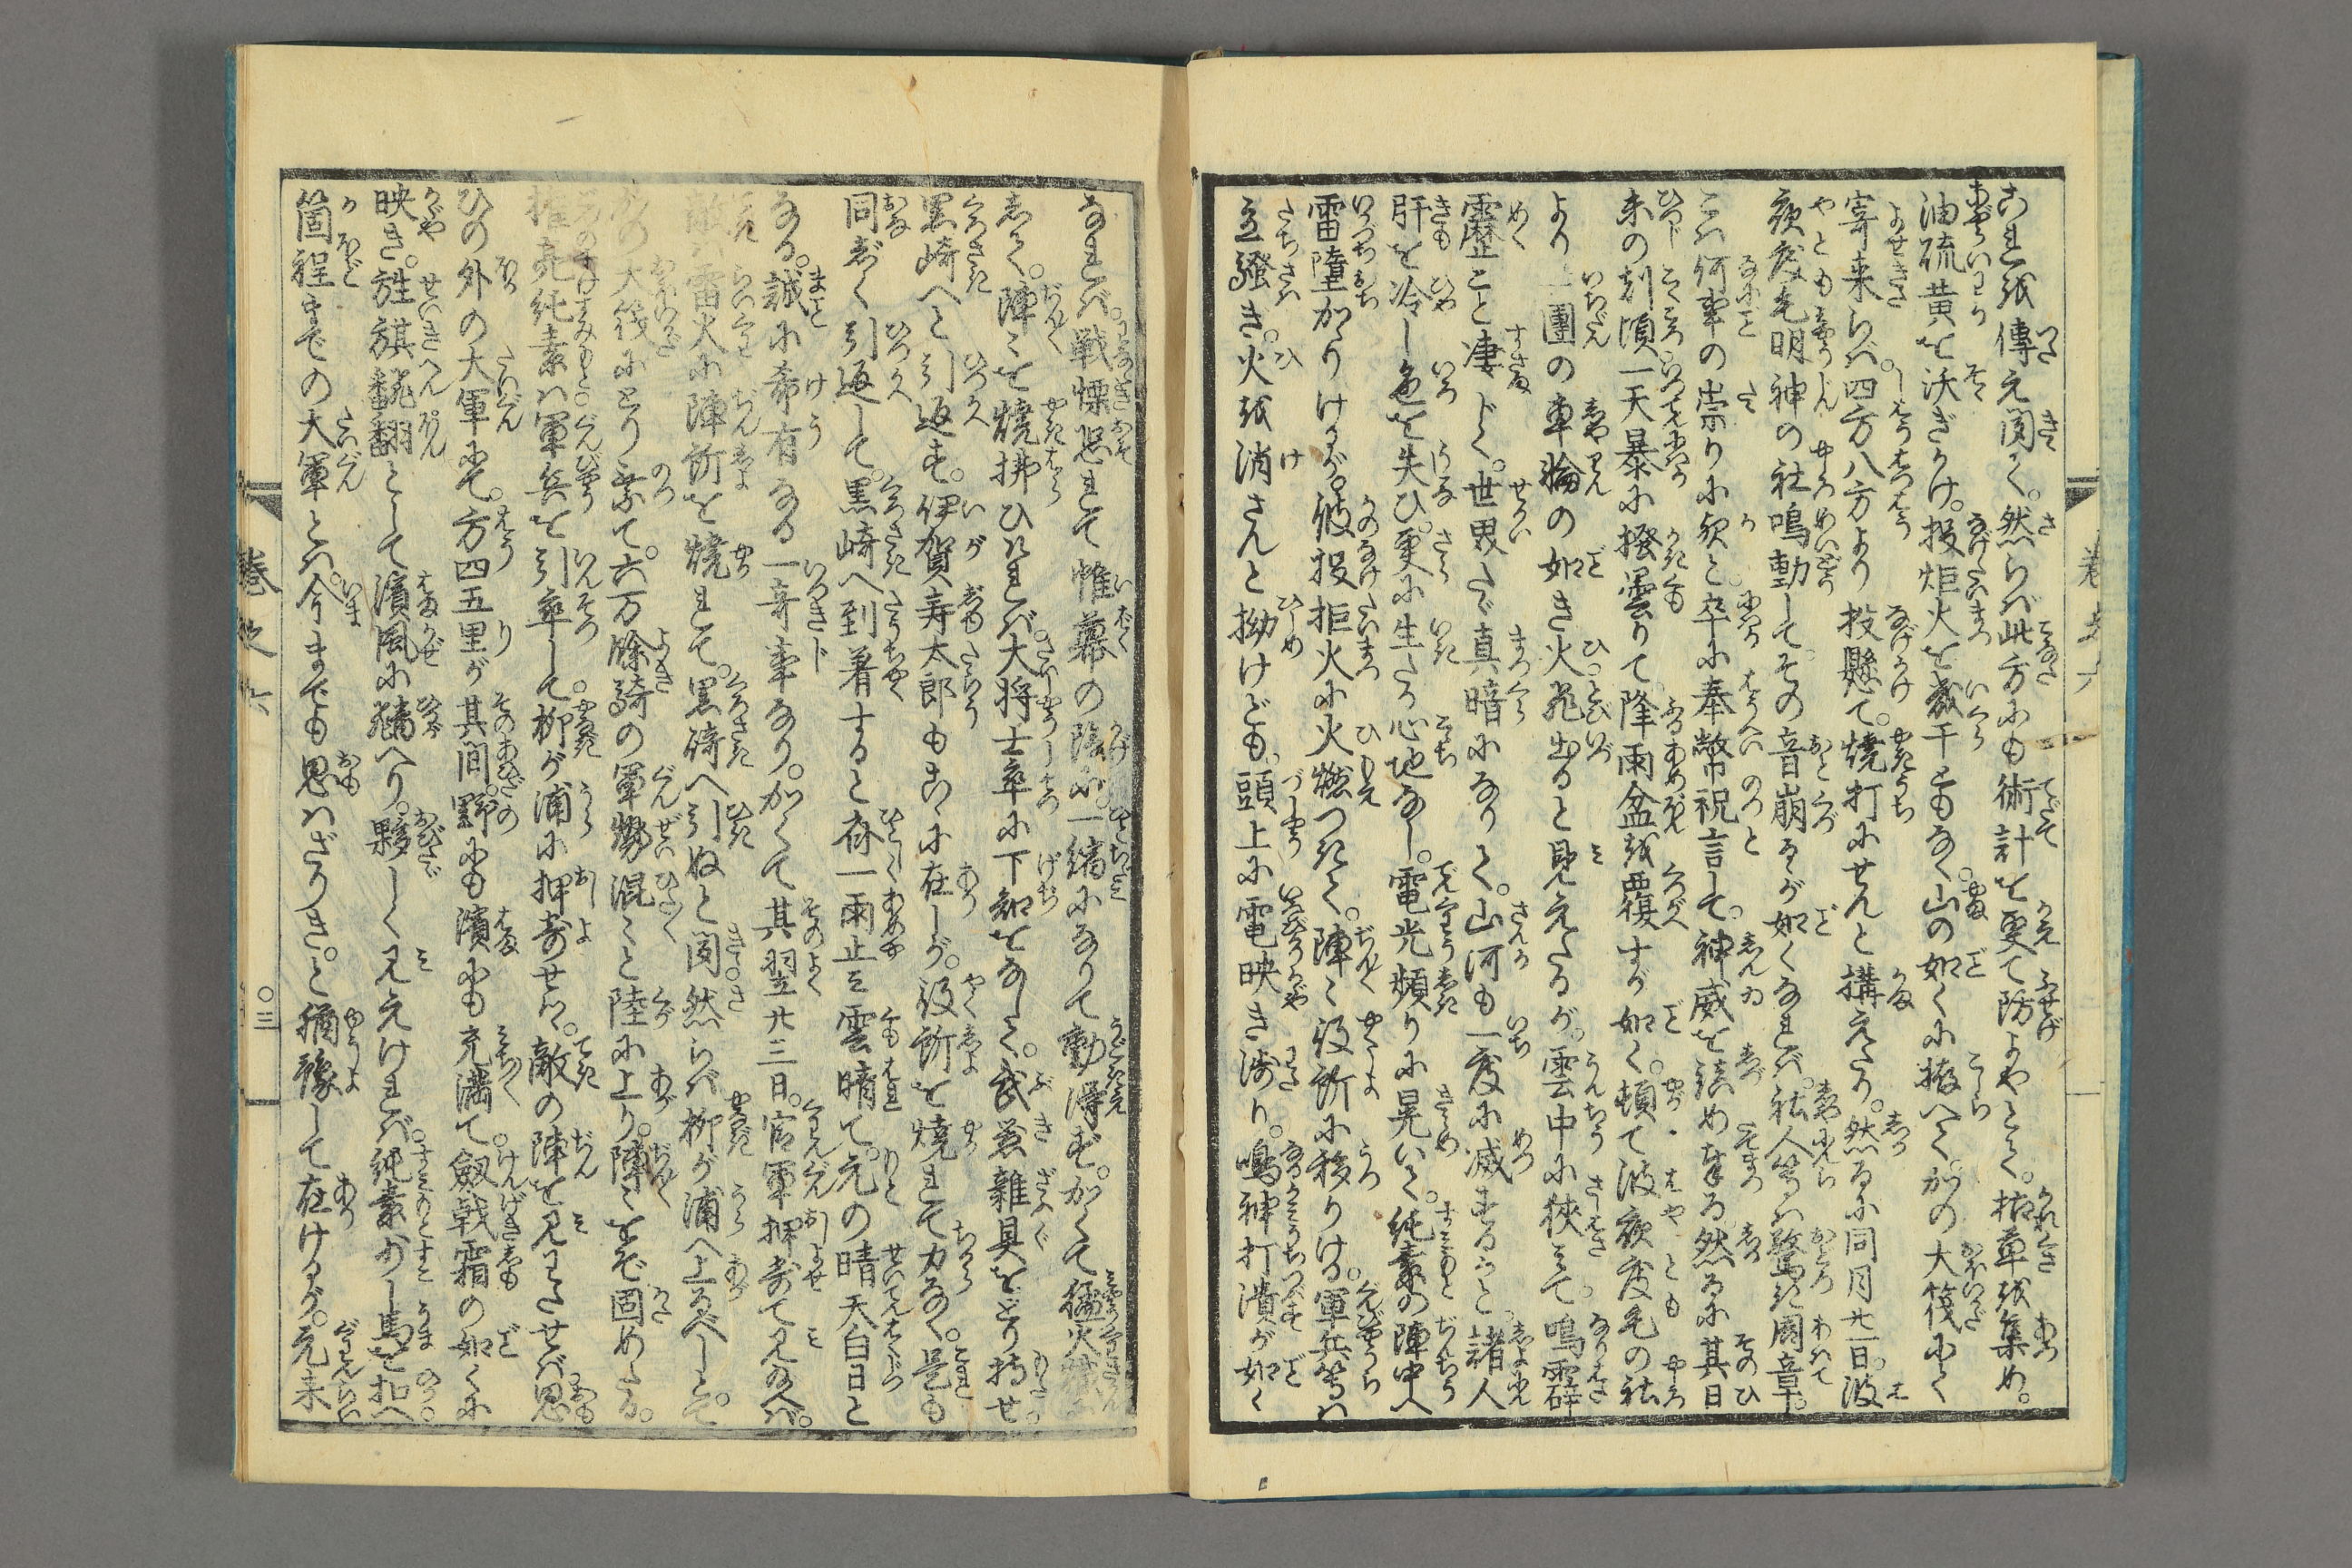 これを傳え聞く。然らバ此方にも術計を更て防よやとて。枯草を集め。
油硫黄を沃ぎかけ。投炬火を幾千ともなく。山の如くに拵へて。かの大筏にて
寄来らバ。四方八方より投懸て。焼打にせんと構えたり。然るに同月廿一日。波
夜戸毛明神の社鳴動して。その音崩るゝが如くなれバ。社人等ハ驚き周章。
こハ何事の崇りに歟と。卒に奉幣祝言して。神威を鎮め奉る然るに其日
未の刻頃一天暴に掻曇りて。降雨盆を覆すが如く。頓て波夜戸毛の社
より一團の車輪の如き火飛出ると見えたるが。雲中に狹まて。鳴霹
靂こと凄じく。世界たゞ真暗になりて。山河も一度に滅するかと。諸人
肝を冷し色を失ひ。更に生たる心地なし。電光頻りに晃いて。純素の陣中へ
雷墮かゝりけるが。彼投炬火に火燃つきて。陣々役所に移りける。軍兵等ハ
立騒き。火を消さんと拗けども。頭上に電映き渉り。鳴神打潰が如く
なれバ。戦慄恐れて帷幕の陰に。一縮になりて動得ず。かくて猛火熾
して。陣々を焼拂ひけれバ。大将士卒に下知をなして。武器雑具をとり持せ。
黒崎へと引返す。伊賀寿太郎もこゝに在しが。役所を焼れて力なく。是も
同じく引返して。黒崎へ到着すると斉一雨止ミ雲晴て。元の晴天白日と
なる。誠に希有なる一奇事なり。かくて其翌廿三日。官軍押寄て見給へバ。
敵ハ雷火に陣所を焼れて。黒崎へ引ぬと聞。然らバ柳が浦へ上るべしとて。
かの大筏にとり乗て。六万餘騎の軍勢混々と陸に上り。陣々をぞ固めたる。
権亮純素ハ軍兵を引率して。柳が浦に押寄せツヽ。敵の陣を見わたせバ。思
ひの外の大軍にて。方四五里が其間。野にも濱にも充満て。劔戟霜の如くに
映き。旌旗翩翻として濱風に飜へり。夥しく見えけれバ。純素少し馬を扣へ
箇程までの大軍とハ。今までも思ハざりき。と猶豫して在けるが。元来
巻之六
〇三